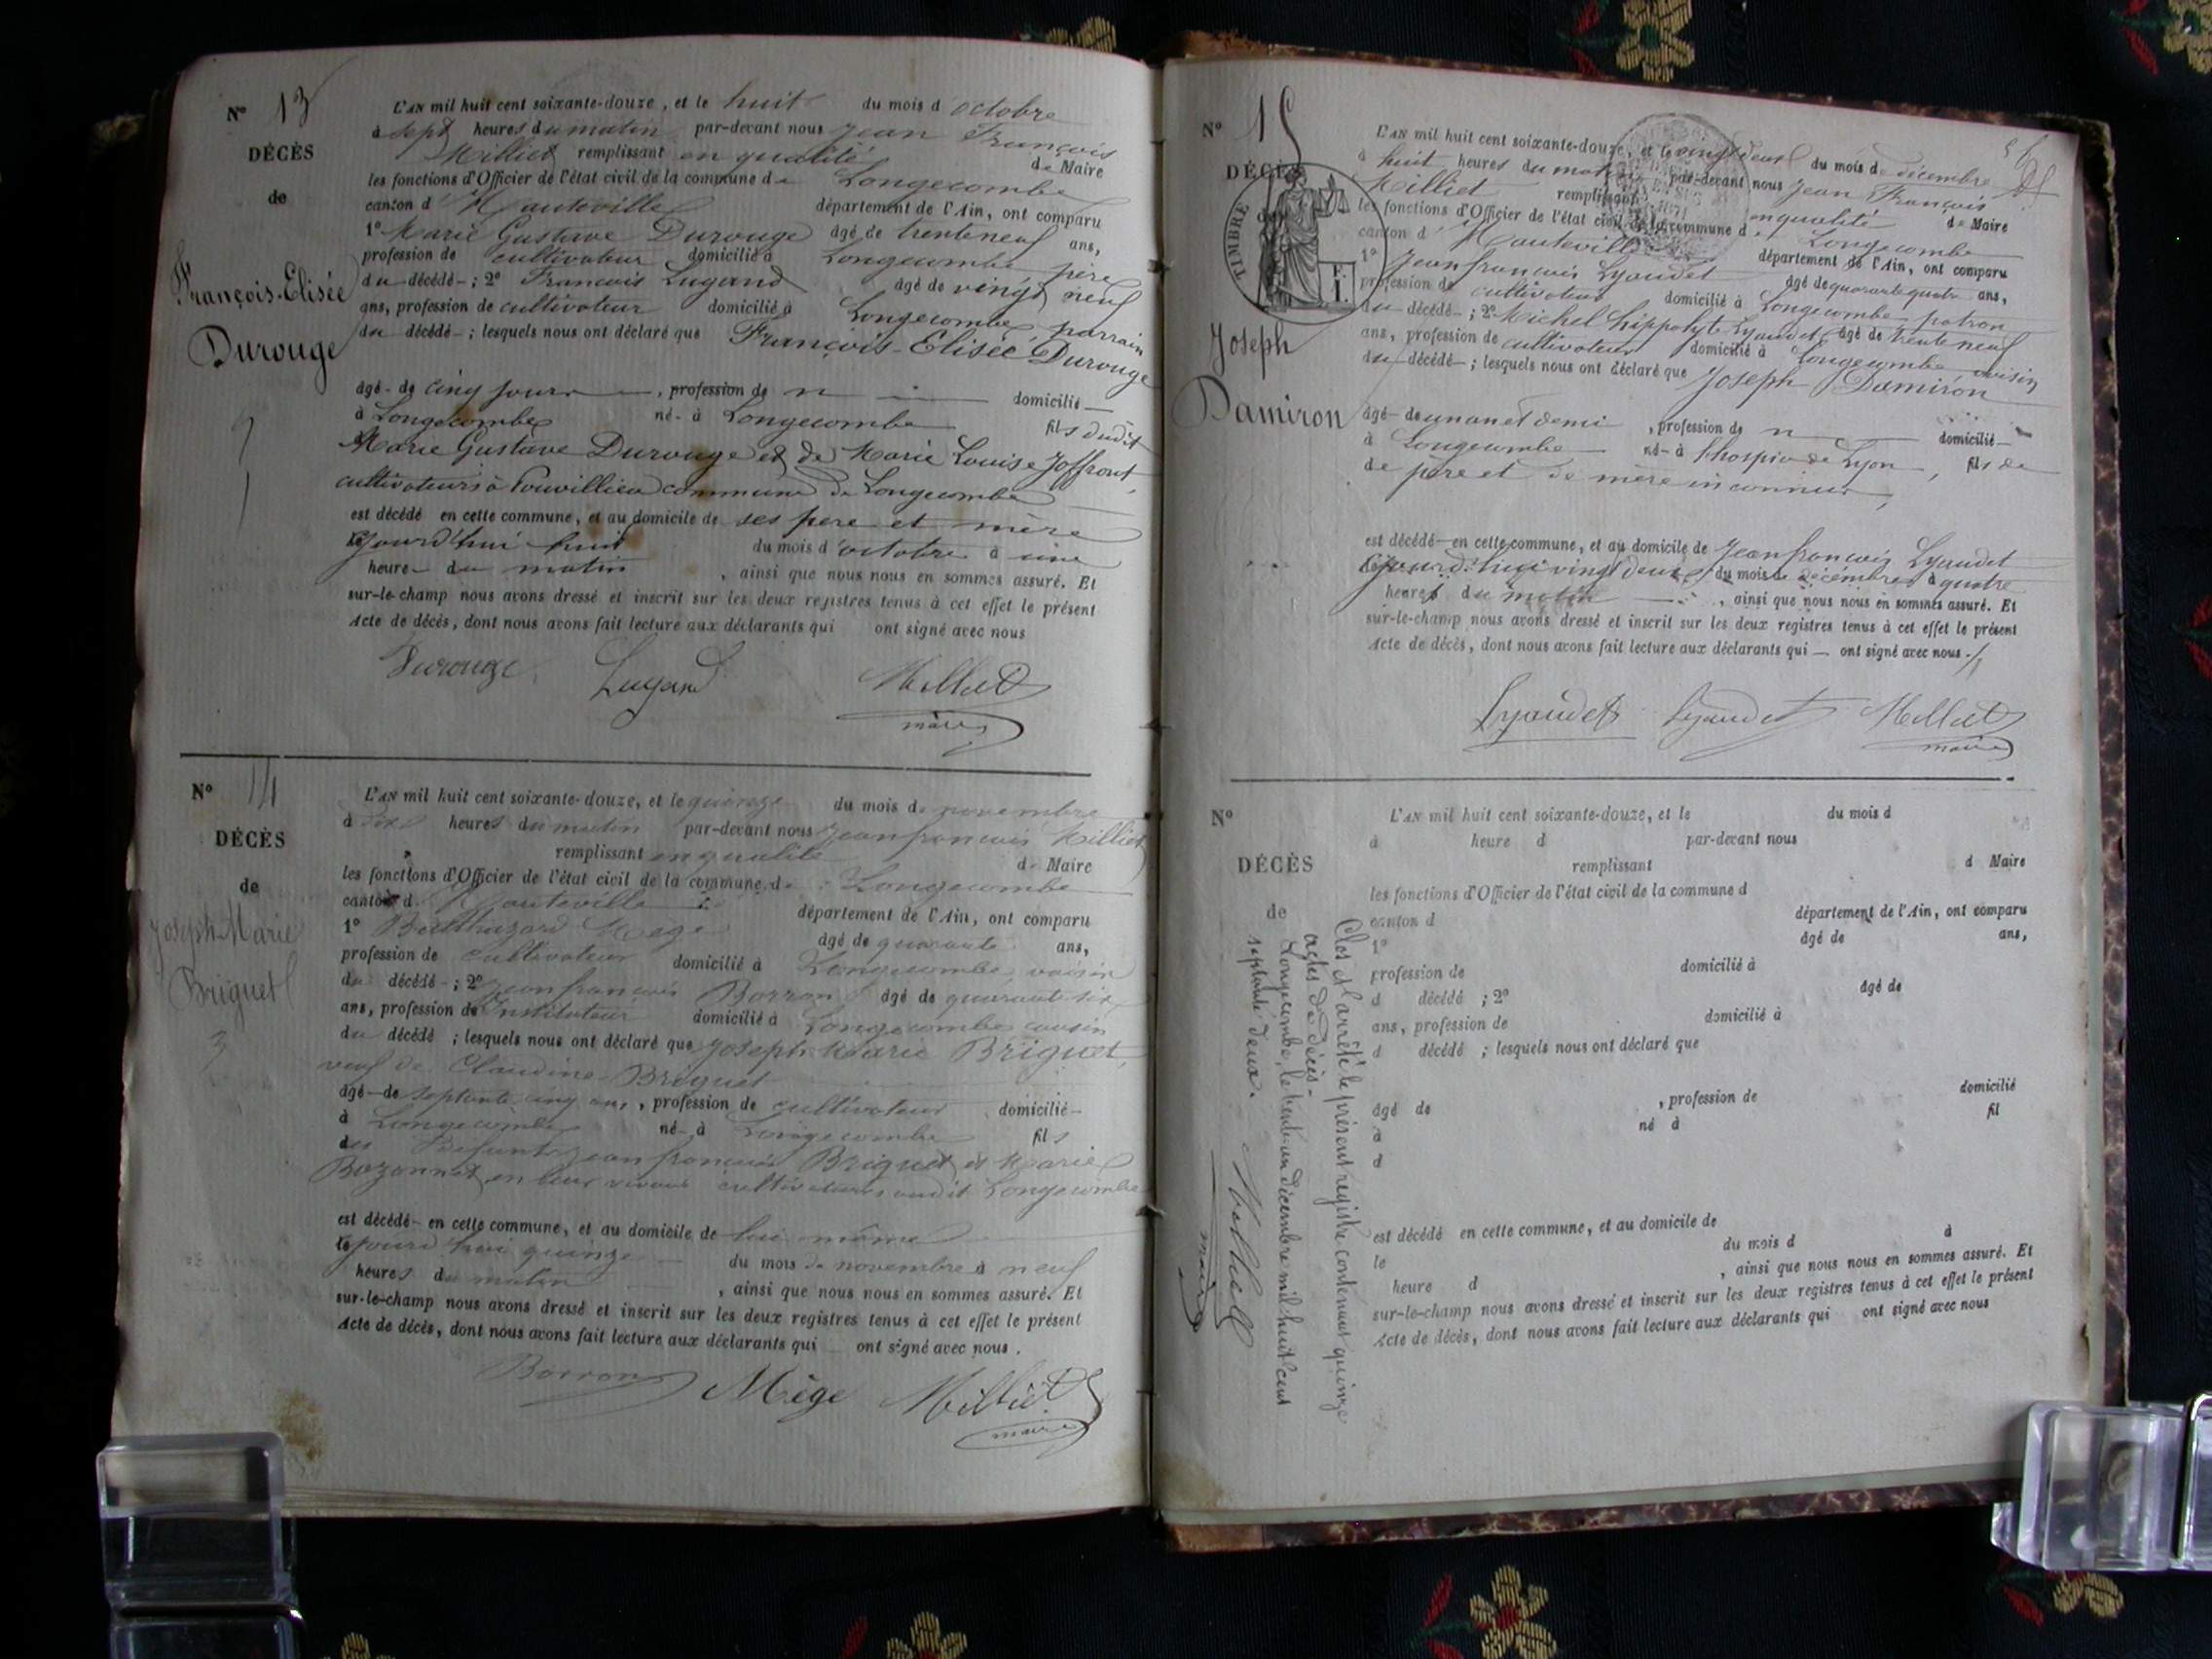 N° 13
DÉCÈS
de
François-Elisée
Durouge
L'AN mil huit cent soixante-douze, et le huit du mois d'octobre
à sept heures du matin par-devant nous Jean François
Milliet remplissant en qualité de Maire
les fonctions d'Officier de l'état civil de la commune de Longecombe
canton d'Hauteville département de l'Ain, ont comparu
1° Marie Gustave Durouge âgé de trente neuf ans,
profession de cultivateur domicilié à Longecombe père
du décédé ; 2° François Lugand âgé de vingt neuf
ans, profession de cultivateur domicilié à Longecombe, parrain
du décédé ; lesquels nous ont déclaré que François-Elisée Durouge
âgé de cinq jours, profession de n domicilié
à Longecombe né à Longecombe fils dudit
Marie Gustave Durouge et de Marie Louise Joffront,
cultivateurs à commune de Longecombe
est décédé en cette commune, et au domicile de ses père et mère
le jourd'hui huit du mois d'octobre à une
heure du matin, ainsi que nous nous en sommes assuré. Et
sur-le-champ nous avons dressé et inscrit sur les deux registres tenus à cet effet le présent
Acte de décès, dont nous avons fait lecture aux déclarants qui ont signé avec nous
Durouge Lugand Milliet
maire
N° 14
DÉCÈS
de
Joseph Marie
Briguet
3
L'AN mil huit cent soixante-douze, et le quinze du mois de novembre
à heures du matin par-devant nous Jean françois Milliet
remplissant en qualité de Maire
les fonctions d'Officier de l'état civil de la commune de Longecombe
canton d'Hauteville département de l'Ain, ont comparu
1° Balthazard Mège âgé de quarante ans,
profession de cultivateur domicilié à Longecombe, voisin
du décédé ; 2° Jean françois Borron âgé de quarante six
ans, profession de Instituteur domicilié à Longecombe cousin
du décédé ; lesquels nous ont déclaré que Joseph Marie Briguet,
veuf de Claudine Briguet
âgé de septante cinq ans, profession de cultivateur domicilié
à Longecombe né à Longecombe fils
des Defunts Jean françois Briguet et Marie
Bozonnet en leur vivant cultivateurs audit Longecombe
est décédé en cette commune, et au domicile de lui même
le jourd'hui quinze du mois de novembre à neuf
heures du matin, ainsi que nous nous en sommes assuré. Et
sur-le-champ nous avons dressé et inscrit sur les deux registres tenus à cet effet le présent
Acte de décès, dont nous avons fait lecture aux déclarants qui ont signé avec nous.
Borron Mège Milliet
maire
N° 15
DÉCÈS
de
TIMBRE
Joseph
Damiron
L'AN mil huit cent soixante-douze, et le vingt deux du mois de décembre
à huit heures du matin par-devant nous Jean François
Milliet remplissant en qualité de Maire
les fonctions d'Officier de l'état civil de la commune de Longecombe
canton d'Hauteville département de l'Ain, ont comparu
1° Jean françois Lyaudet âgé de quarante quatre ans,
profession de cultivateur domicilié à Longecombe patron
du décédé ; 2° Michel hippolyte Lyaudet âgé de trente neuf
ans, profession de cultivateur domicilié à Longecombe voisin
du décédé ; lesquels nous ont déclaré que Joseph Damiron
âgé de un an et demi, profession de n domicilié
à Longecombe né à l'hospice de Lyon, fils de
de père et de mère inconnus,
est décédé en cette commune, et au domicile de Jean françois Lyaudet
le jourd'hui vingt deux du mois de décembre à quatre
heures du matin, ainsi que nous nous en sommes assuré. Et
sur-le-champ nous avons dressé et inscrit sur les deux registres tenus à cet effet le présent
Acte de décès, dont nous avons fait lecture aux déclarants qui ont signé avec nous.
Lyaudet Lyaudet Milliet
maire
N°
DÉCÈS
de
L'AN mil huit cent soixante-douze, et le du mois d
à heure d par-devant nous
remplissant d Maire
les fonctions d'Officier de l'état civil de la commune d
canton d département de l'Ain, ont comparu
1° âgé de ans,
profession de domicilié à
d décédé ; 2° âgé de
ans, profession de domicilié à
d décédé ; lesquels nous ont déclaré que
âgé de , profession de domicilié
à né à fil
d
est décédé en cette commune, et au domicile de
le du mois d à
heure d , ainsi que nous nous en sommes assuré. Et
sur-le-champ nous avons dressé et inscrit sur les deux registres tenus à cet effet le présent
Acte de décès, dont nous avons fait lecture aux déclarants qui ont signé avec nous
Clos et arrêté le présent registre contenant quinze
actes de décès.
Longecombe, le trente un décembre mil huit cent
septante deux.
Milliet
maire